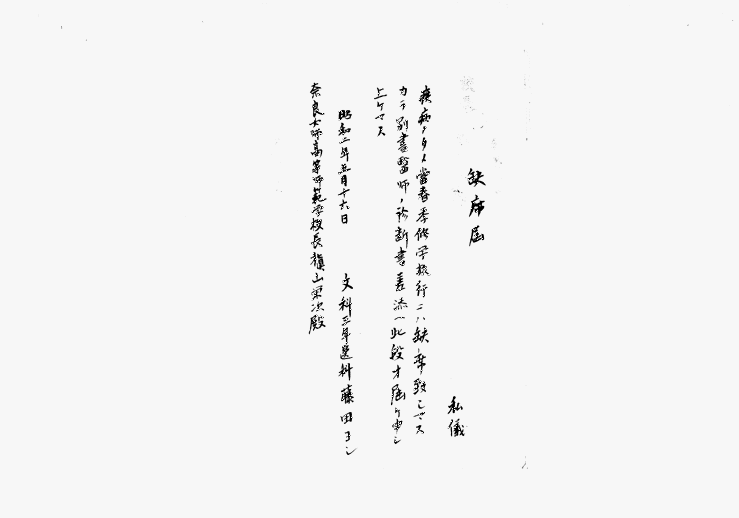 缺席届
私儀
疾病ノタメ當春季修学旅行ニハ缺席致シマス
カラ別書醫師ノ診断書差添ヘ此段オ届ケ申シ
上ケマス
昭和二年五月十六日
文科三年選科藤田ヨシ
奈良女子高等師範学校長槇山栄次殿